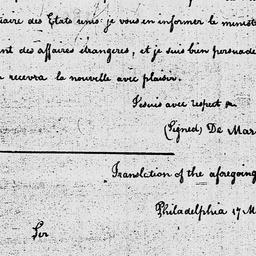 iaire des Etats unis: je vous en informer le minist
nt des affaires étrangeres, et je suis bien persuadé
recevra la nouvelle avec plaisir.
Je suis avec respect
(Signed) De Mar
Translation of the aforegoing
Philadelphia 17 M
Sir